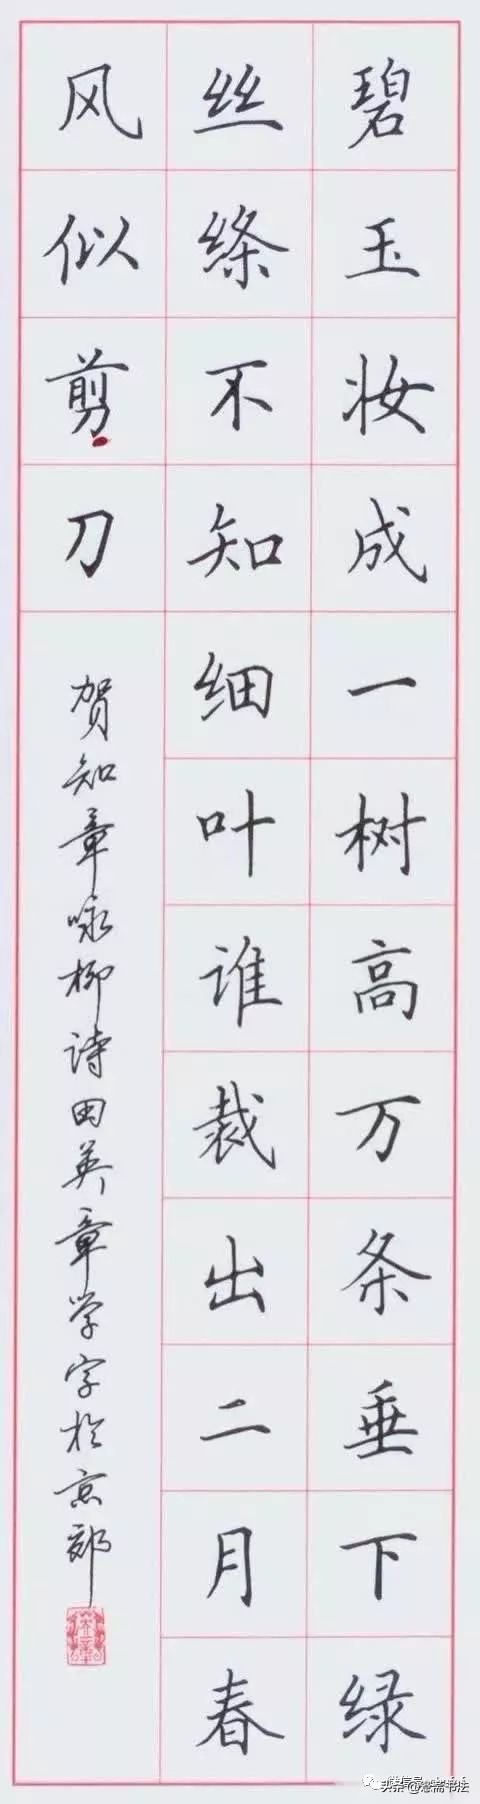 碧玉妆成一树高万条垂下绿
丝绦不知细叶谁裁出二月春
风似剪刀
贺知章咏柳诗田英章学字于京郊
头条@憨斋书法